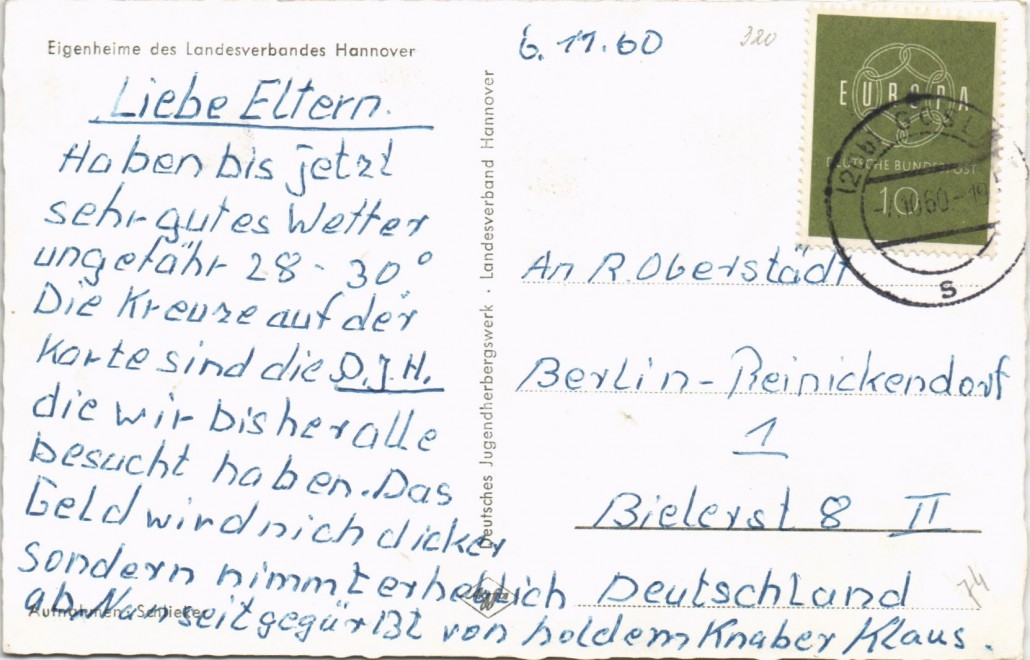 Eigenheime des Landesverbandes Hannover
Liebe Eltern.
Haben bis jetzt
sehr gutes Wetter
ungefähr 28 - 30°
Die Kreuze auf der
Karte sind die D.J.H.
die wir bisher alle
besucht haben. Das
Geld wird nich dicker
sondern nimmt erheblich
ab. Nun seit gegürßt von holdem Knaber Klaus.
Aufnahmen: Schlieker
Deutsches Jugendherbergswerk · Landesverband Hannover
6.11.60
320
EUROPA
DEUTSCHE BUNDESPOST
10
(20b) GOSLA
10.60-19
s
An R. Oberstädt
Berlin-Reinickendorf
1
Bielerst 8 II
Deutschland
74